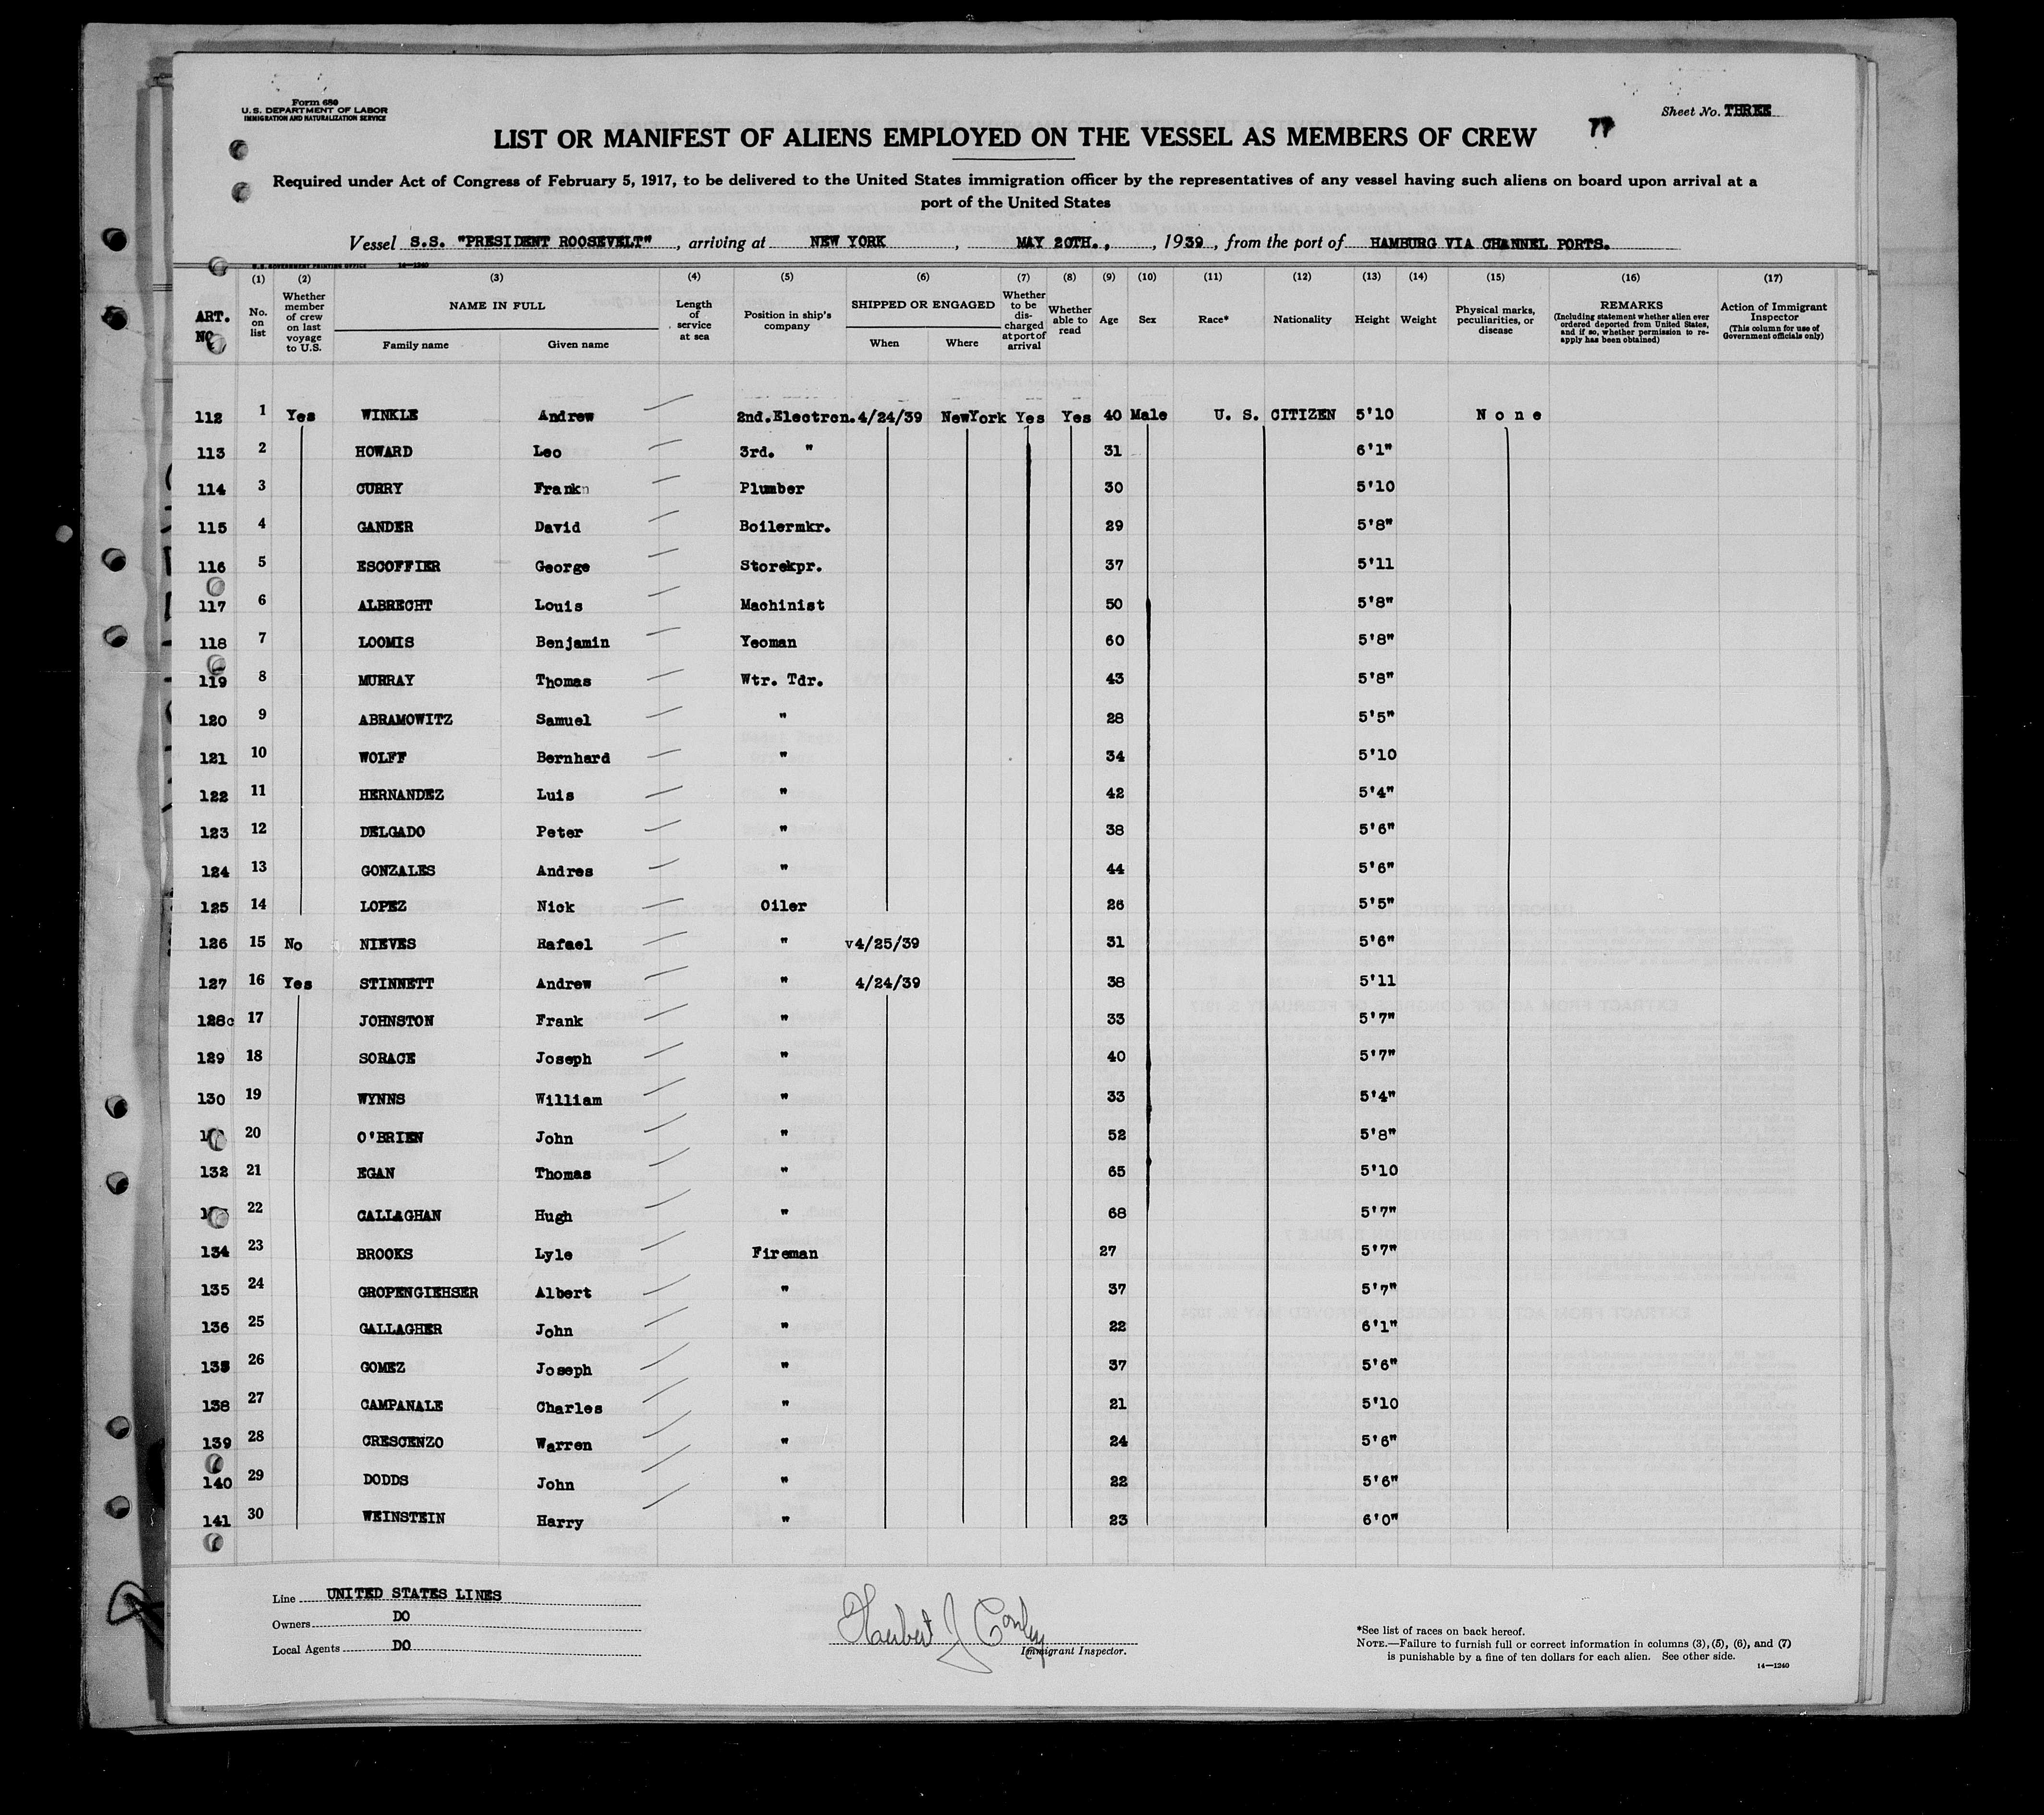 Form 680
U.S. DEPARTMENT OF LABOR
IMMIGRATION AND NATURALIZATION SERVICE
Sheet No. THREE
LIST OR MANIFEST OF ALIENS EMPLOYED ON THE VESSEL AS MEMBERS OF CREW
Required under Act of Congress of February 5, 1917, to be delivered to the United States immigration officer by the representatives of any vessel having such aliens on board upon arrival at a
port of the United States
Vessel S.S. "PRESIDENT ROOSEVELT", arriving at NEW YORK, MAY 20TH., , 1939, from the port of HAMBURG VIA CHANNEL PORTS.
U.S. GOVERNMENT PRINTING OFFICE 14—1240
ART. NO (1) No. on list (2) Whether member of crew on last voyage to U.S. (3) NAME IN FULL Family name Given name (4) Length of service at sea (5) Position in ship's company (6) SHIPPED OR ENGAGED When Where (7) Whether to be discharged at port of arrival (8) Whether able to read (9) Age (10) Sex (11) Race* (12) Nationality (13) Height (14) Weight (15) Physical marks, peculiarities, or disease (16) REMARKS (Including statement whether alien ever ordered deported from United States, and if so, whether permission to re-apply has been obtained) (17) Action of Immigrant Inspector (This column for use of Government officials only)
112 1 Yes WINKLE Andrew 2nd.Electron. 4/24/39 NewYork Yes Yes 40 Male U. S. CITIZEN 5'10 None
113 2 HOWARD Leo 3rd. " 31 6'1"
114 3 CURRY Frank Plumber 30 5'10
115 4 GANDER David Boilermkr. 29 5'8"
116 5 ESCOFFIER George Storekpr. 37 5'11
117 6 ALBRECHT Louis Machinist 50 5'8"
118 7 LOOMIS Benjamin Yeoman 60 5'8"
119 8 MURRAY Thomas Wtr. Tdr. 43 5'8"
120 9 ABRAMOWITZ Samuel " 28 5'5"
121 10 WOLFF Bernhard " 34 5'10
122 11 HERNANDEZ Luis " 42 5'4"
123 12 DELGADO Peter " 38 5'6"
124 13 GONZALES Andres " 44 5'6"
125 14 LOPEZ Nick Oiler 26 5'5"
126 15 No NIEVES Rafael " v4/25/39 31 5'6"
127 16 Yes STINNETT Andrew " 4/24/39 38 5'11
128c 17 JOHNSTON Frank " 33 5'7"
129 18 SORACE Joseph " 40 5'7"
130 19 WYNNS William " 33 5'4"
20 O'BRIEN John " 52 5'8"
132 21 EGAN Thomas " 65 5'10
22 CALLAGHAN Hugh " 68 5'7"
134 23 BROOKS Lyle Fireman 27 5'7"
135 24 GROPENGIEHSER Albert " 37 5'7"
136 25 GALLAGHER John " 22 6'1"
26 GOMEZ Joseph " 37 5'6"
138 27 CAMPANALE Charles " 21 5'10
139 28 CRESCENZO Warren " 24 5'6"
140 29 DODDS John " 22 5'6"
141 30 WEINSTEIN Harry " 23 6'0"
Line UNITED STATES LINES
Owners DO
Local Agents DO
Herbert J Conley
Immigrant Inspector.
*See list of races on back hereof.
NOTE.—Failure to furnish full or correct information in columns (3), (5), (6), and (7)
is punishable by a fine of ten dollars for each alien. See other side.
14—1240